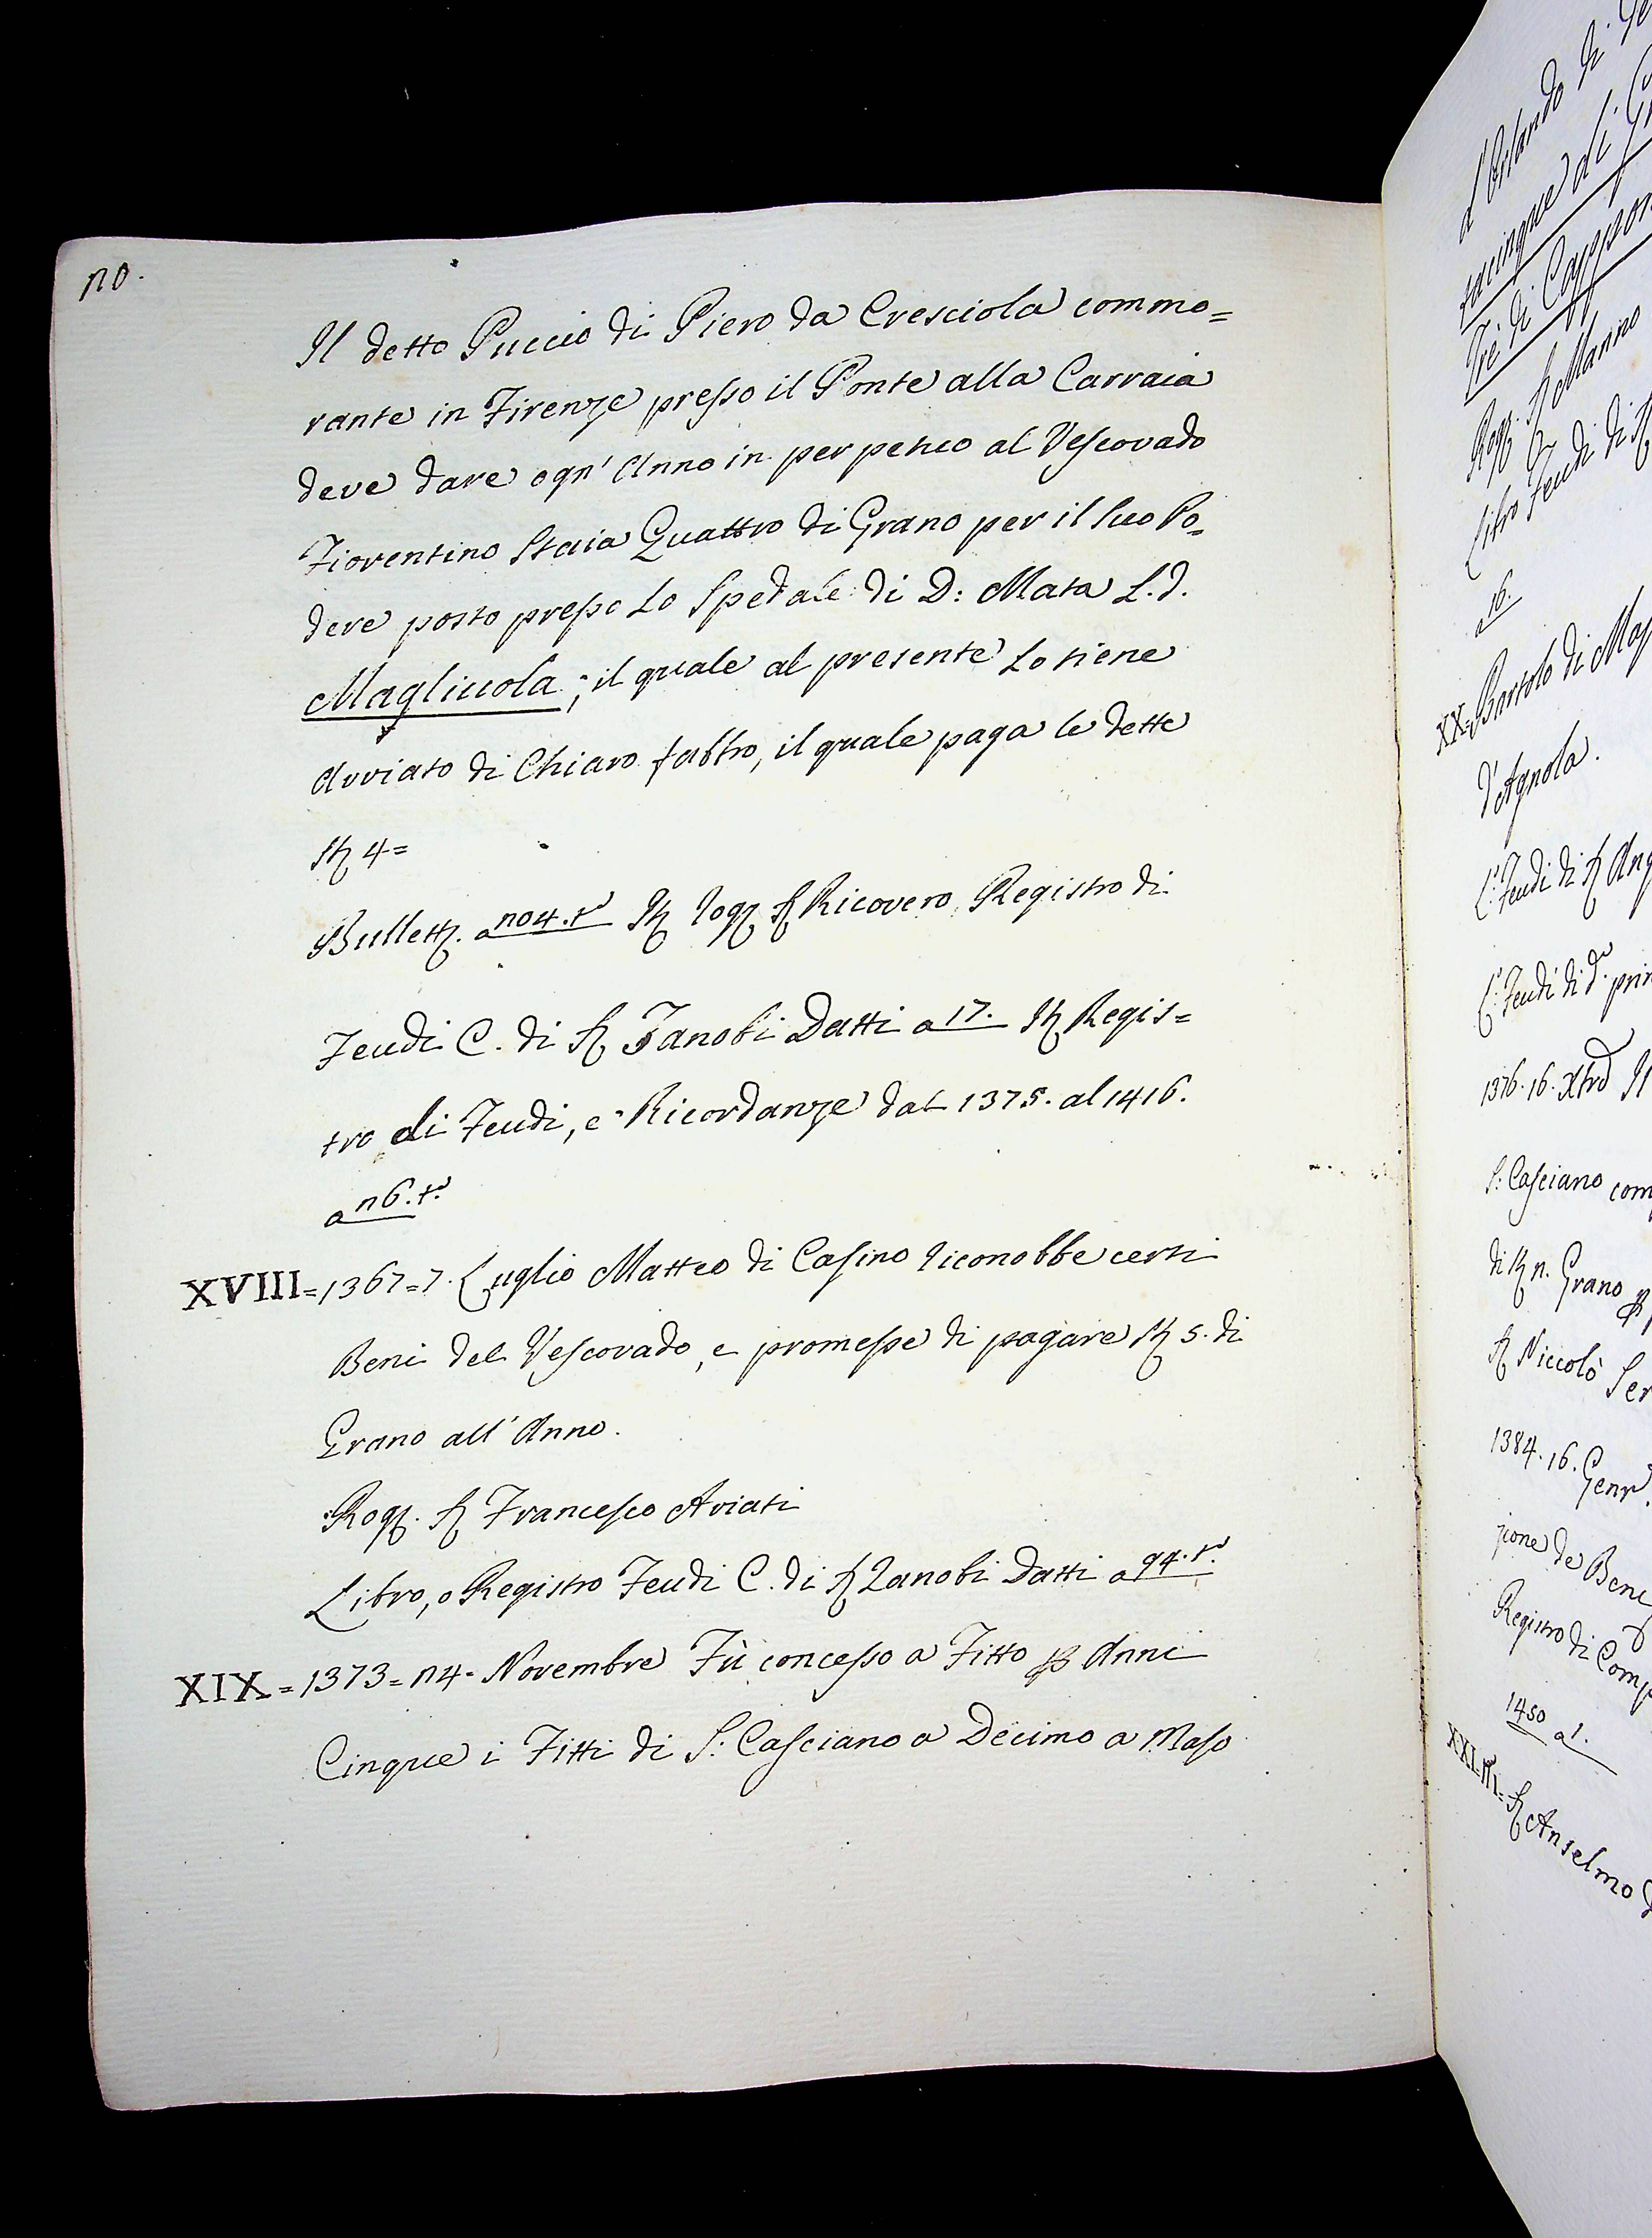 no.
Il detto Puccio di Piero da Cresciola commo=
rante in Firenze presso il Ponte alla Carraia
deve dare ogn' Anno in perpetuo al Vescovado
Fiorentino Staia Quattro di Grano per il suo Po=
dere posto presso Lo Spedale di D: Mata L.d.
Magliuola; il quale al presente Lo tiene
Avviato di Chiaro fabbro, il quale paga le dette
St 4=
Bullett. a no4.t° St Rog. Ser Ricovero Registro di
Feudi C. di Ser Zanobi Datti a 17. St Regis=
tro di Feudi, e Ricordanze dal 1375. al 1416.
a n6.t°
XVIII=1367=7. Luglio Matteo di Casino riconobbe certi
Beni del Vescovado, e promesse di pagare St 5. di
Grano all' Anno.
Rog. Ser Francesco Aviati
Libro, o Registro Feudi C. di Ser Zanobi Datti a 94.t°
XIX=1373=n4. Novembre Fù concesso a Fitto p Anni
Cinque i Fitti di S: Casciano a Decimo a Maso
d'Orlando di
tacinque di
Trè di Cappon
Rog. Ser Manno
Libro Feudi di Ser
a 16.
XX=Bartolo di
d'Agnola.
L: Feudi di Ser Ang
L: Feudi di d° prim
1376. 16. Xbre Il
S: Casciano com
di St n. Grano p
Ser Niccolò Ser
1384. 16. Genr°
zione de Beni
Registro di Comp
1450 a 1.
XXI= Ser Anselmo